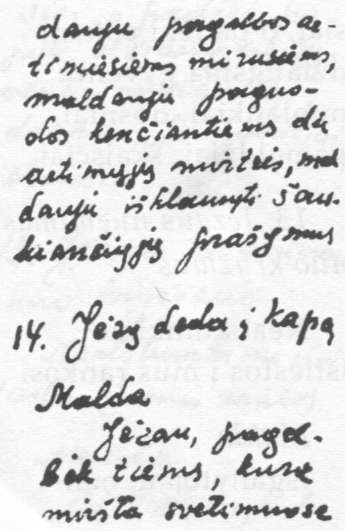 dauju pagalbos ar-
timiesiems mirusiems,
maldauju paguo-
dos kenčiantiems dėl
artimųjų mirties, mal
dauju išklausyti šau-
kiančiųjų prašymus
14. Jėzų deda į kapą
Malda
Jėzau, pagel-
bėk tiems, kurie
miršta svetimuose